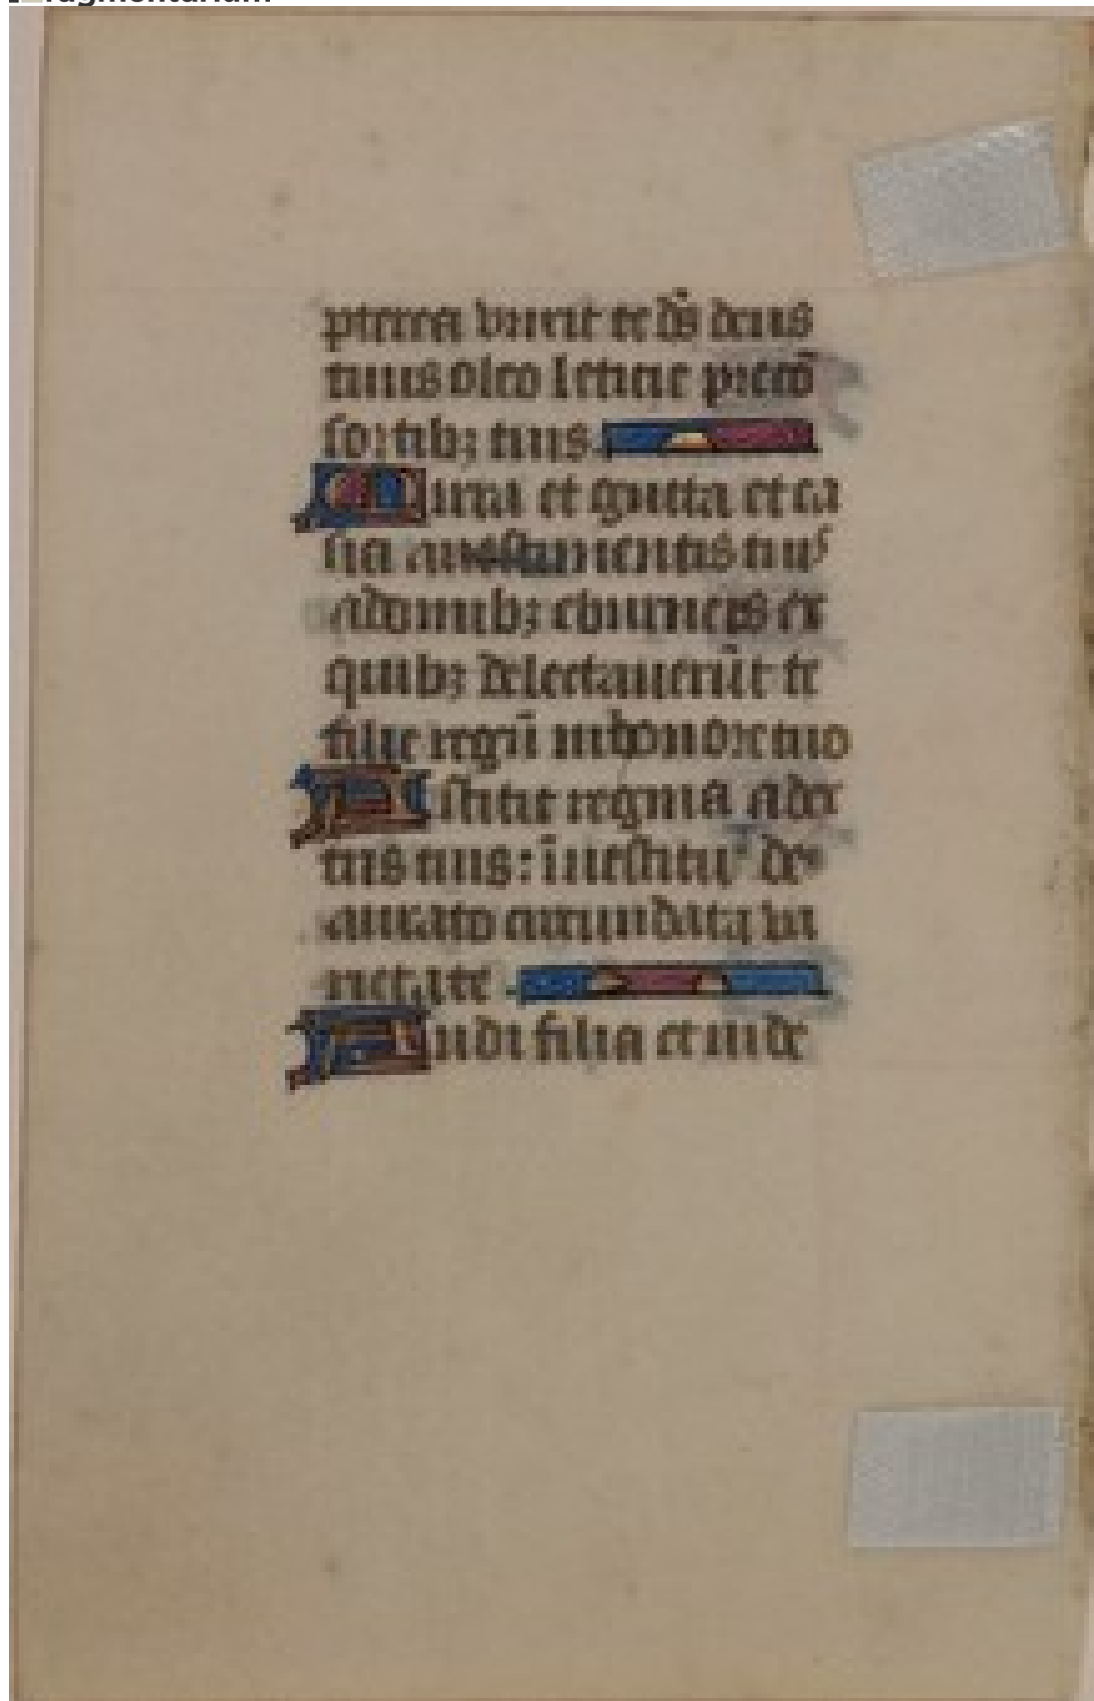 fragmentarium
pterea vnxit te ds̄ deus
tuus oleo leticie pre cō
sortib; tuis
Mirra et gutta et ca
sia auestimentis tuis
adomib; eburneis ex
quib; delectauerūt te
filie regū inhonore tuo
Astitit regina adex
tris tuis: īuestitu de
aurato circumdata va
rietate
Audi filia et uide